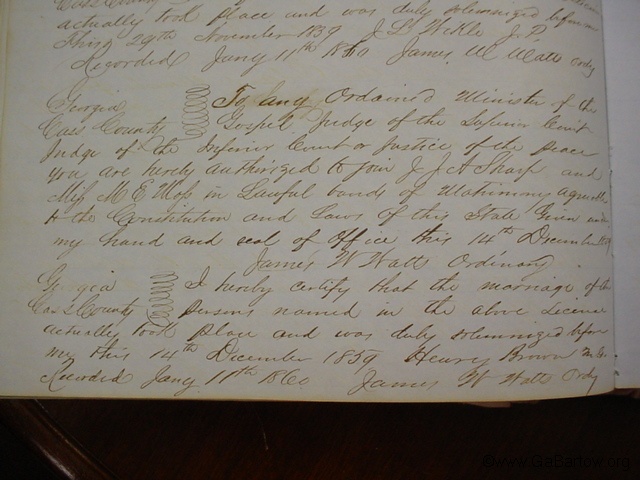 Cass County
actually took place and was duly solemnized before
This 29th November 1859 J L Wikle J.P.
Recorded Jany 11th 1860 James W Watts Ordy
Georgia To any Ordained Minister of the
Cass County Gospel Judge of the Superior Court
Judge of the Inferior Court or Justice of the peace
you are hereby authorized to join J J A Sharp and
Miss M E Moss in Lawful bonds of Matrimony agreeable
to the Constitution and Laws of this State Given under
my hand and seal of Office this 14th December 1859
James W Watts Ordinary
Georgia I hereby certify that the marriage of the
Cass County persons named in the above License
actually took place and was duly solemnized before
my this 14th December 1859 Henry Brown
Recorded Jany 11th 1860 James W Watts Ordy
©www.GaBartow.org